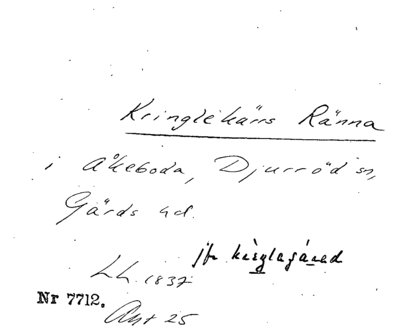 Kringlekärrs Ränna
i Åkeboda, Djurröd sn,
Gärds hd.
jfr kringlagärad
LL. 1837
Nr 7712.
Akt 25